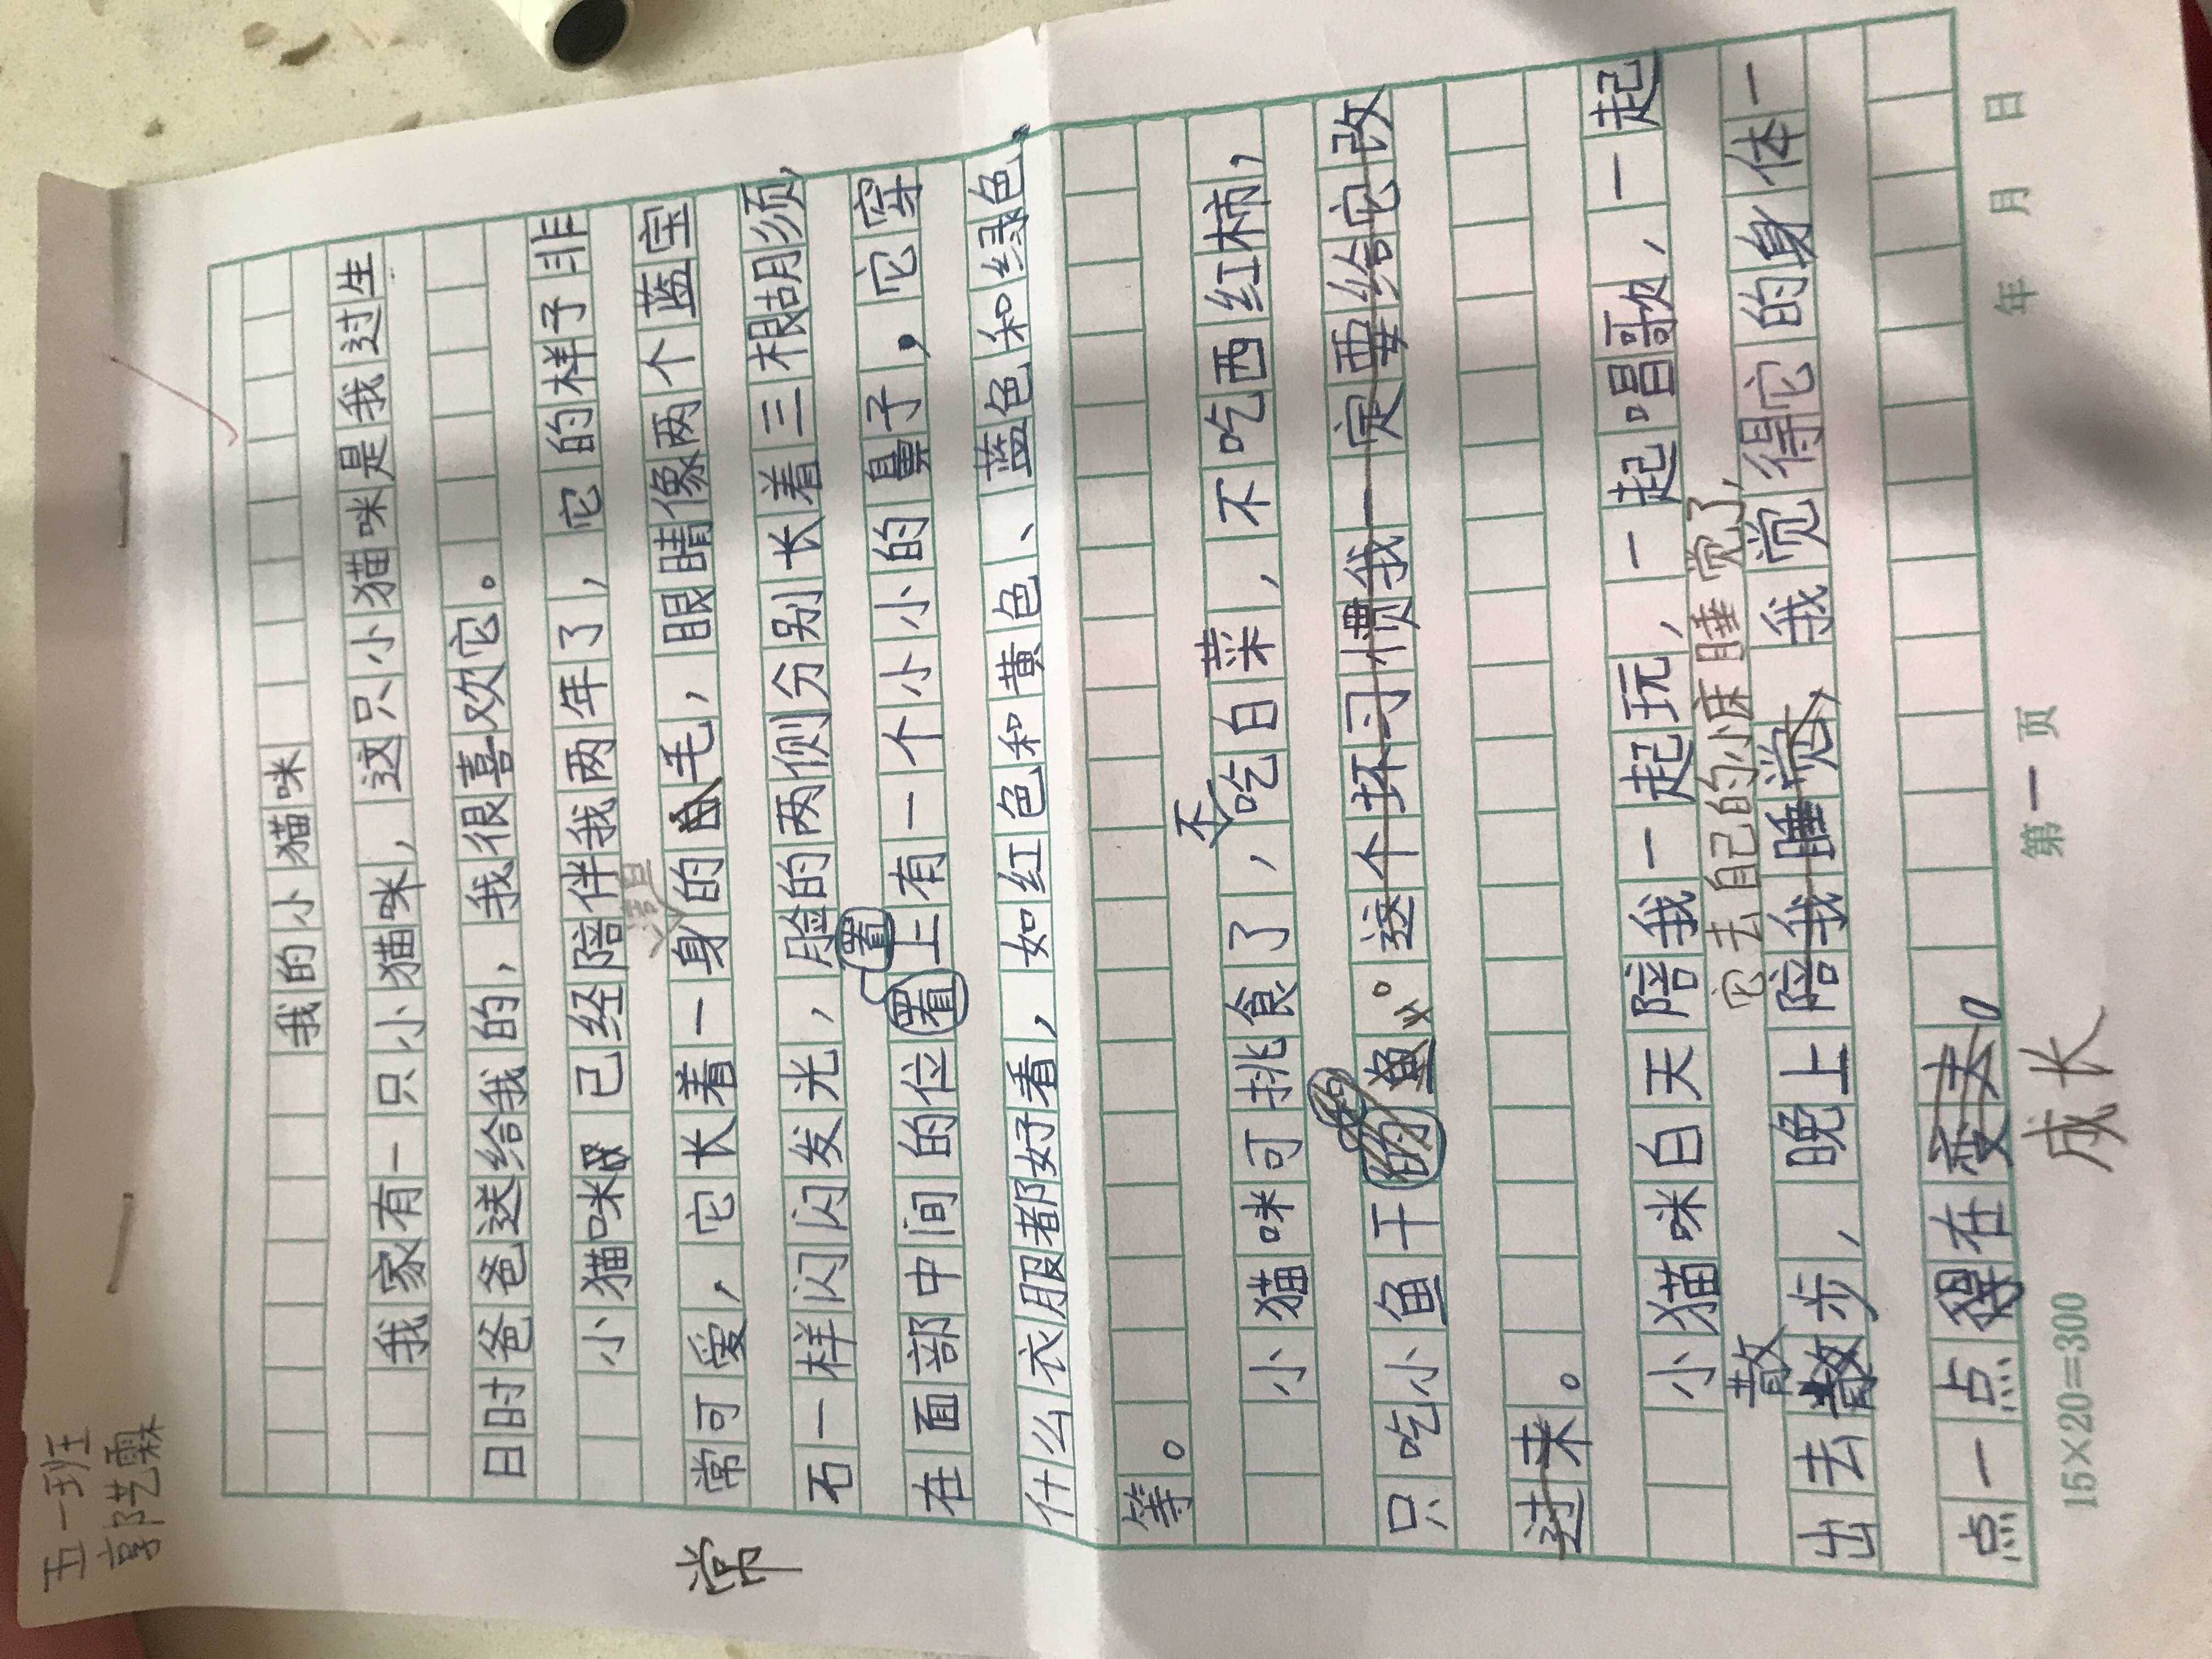 五一班王
郭艺霖
我的小猫咪
我家有一只小猫咪，这只小猫咪是我过生
日时爸爸送给我的，我很喜欢它。
小猫咪已经陪伴我两年了，它的样子非
常可爱，它长着一身的毛，眼睛像两个蓝宝
常
石一样闪闪发光，脸的两侧分别长着三根胡须，
置
在面部中间的位置上有一个小小的鼻子，它穿
什么衣服都好看，如红色和黄色、蓝色和绿色
等。
小猫咪可挑食了，不吃白菜，不吃西红柿，
只吃小鱼干。这个坏习惯我一定要给它改
过来。
小猫咪白天陪我一起玩，一起唱歌，一起
散
它去自己的小床睡觉了，
出去散步，晚上陪我睡觉，我觉得它的身体一
点一点得在变大。
成长
15×20=300
第一页
年 月 日